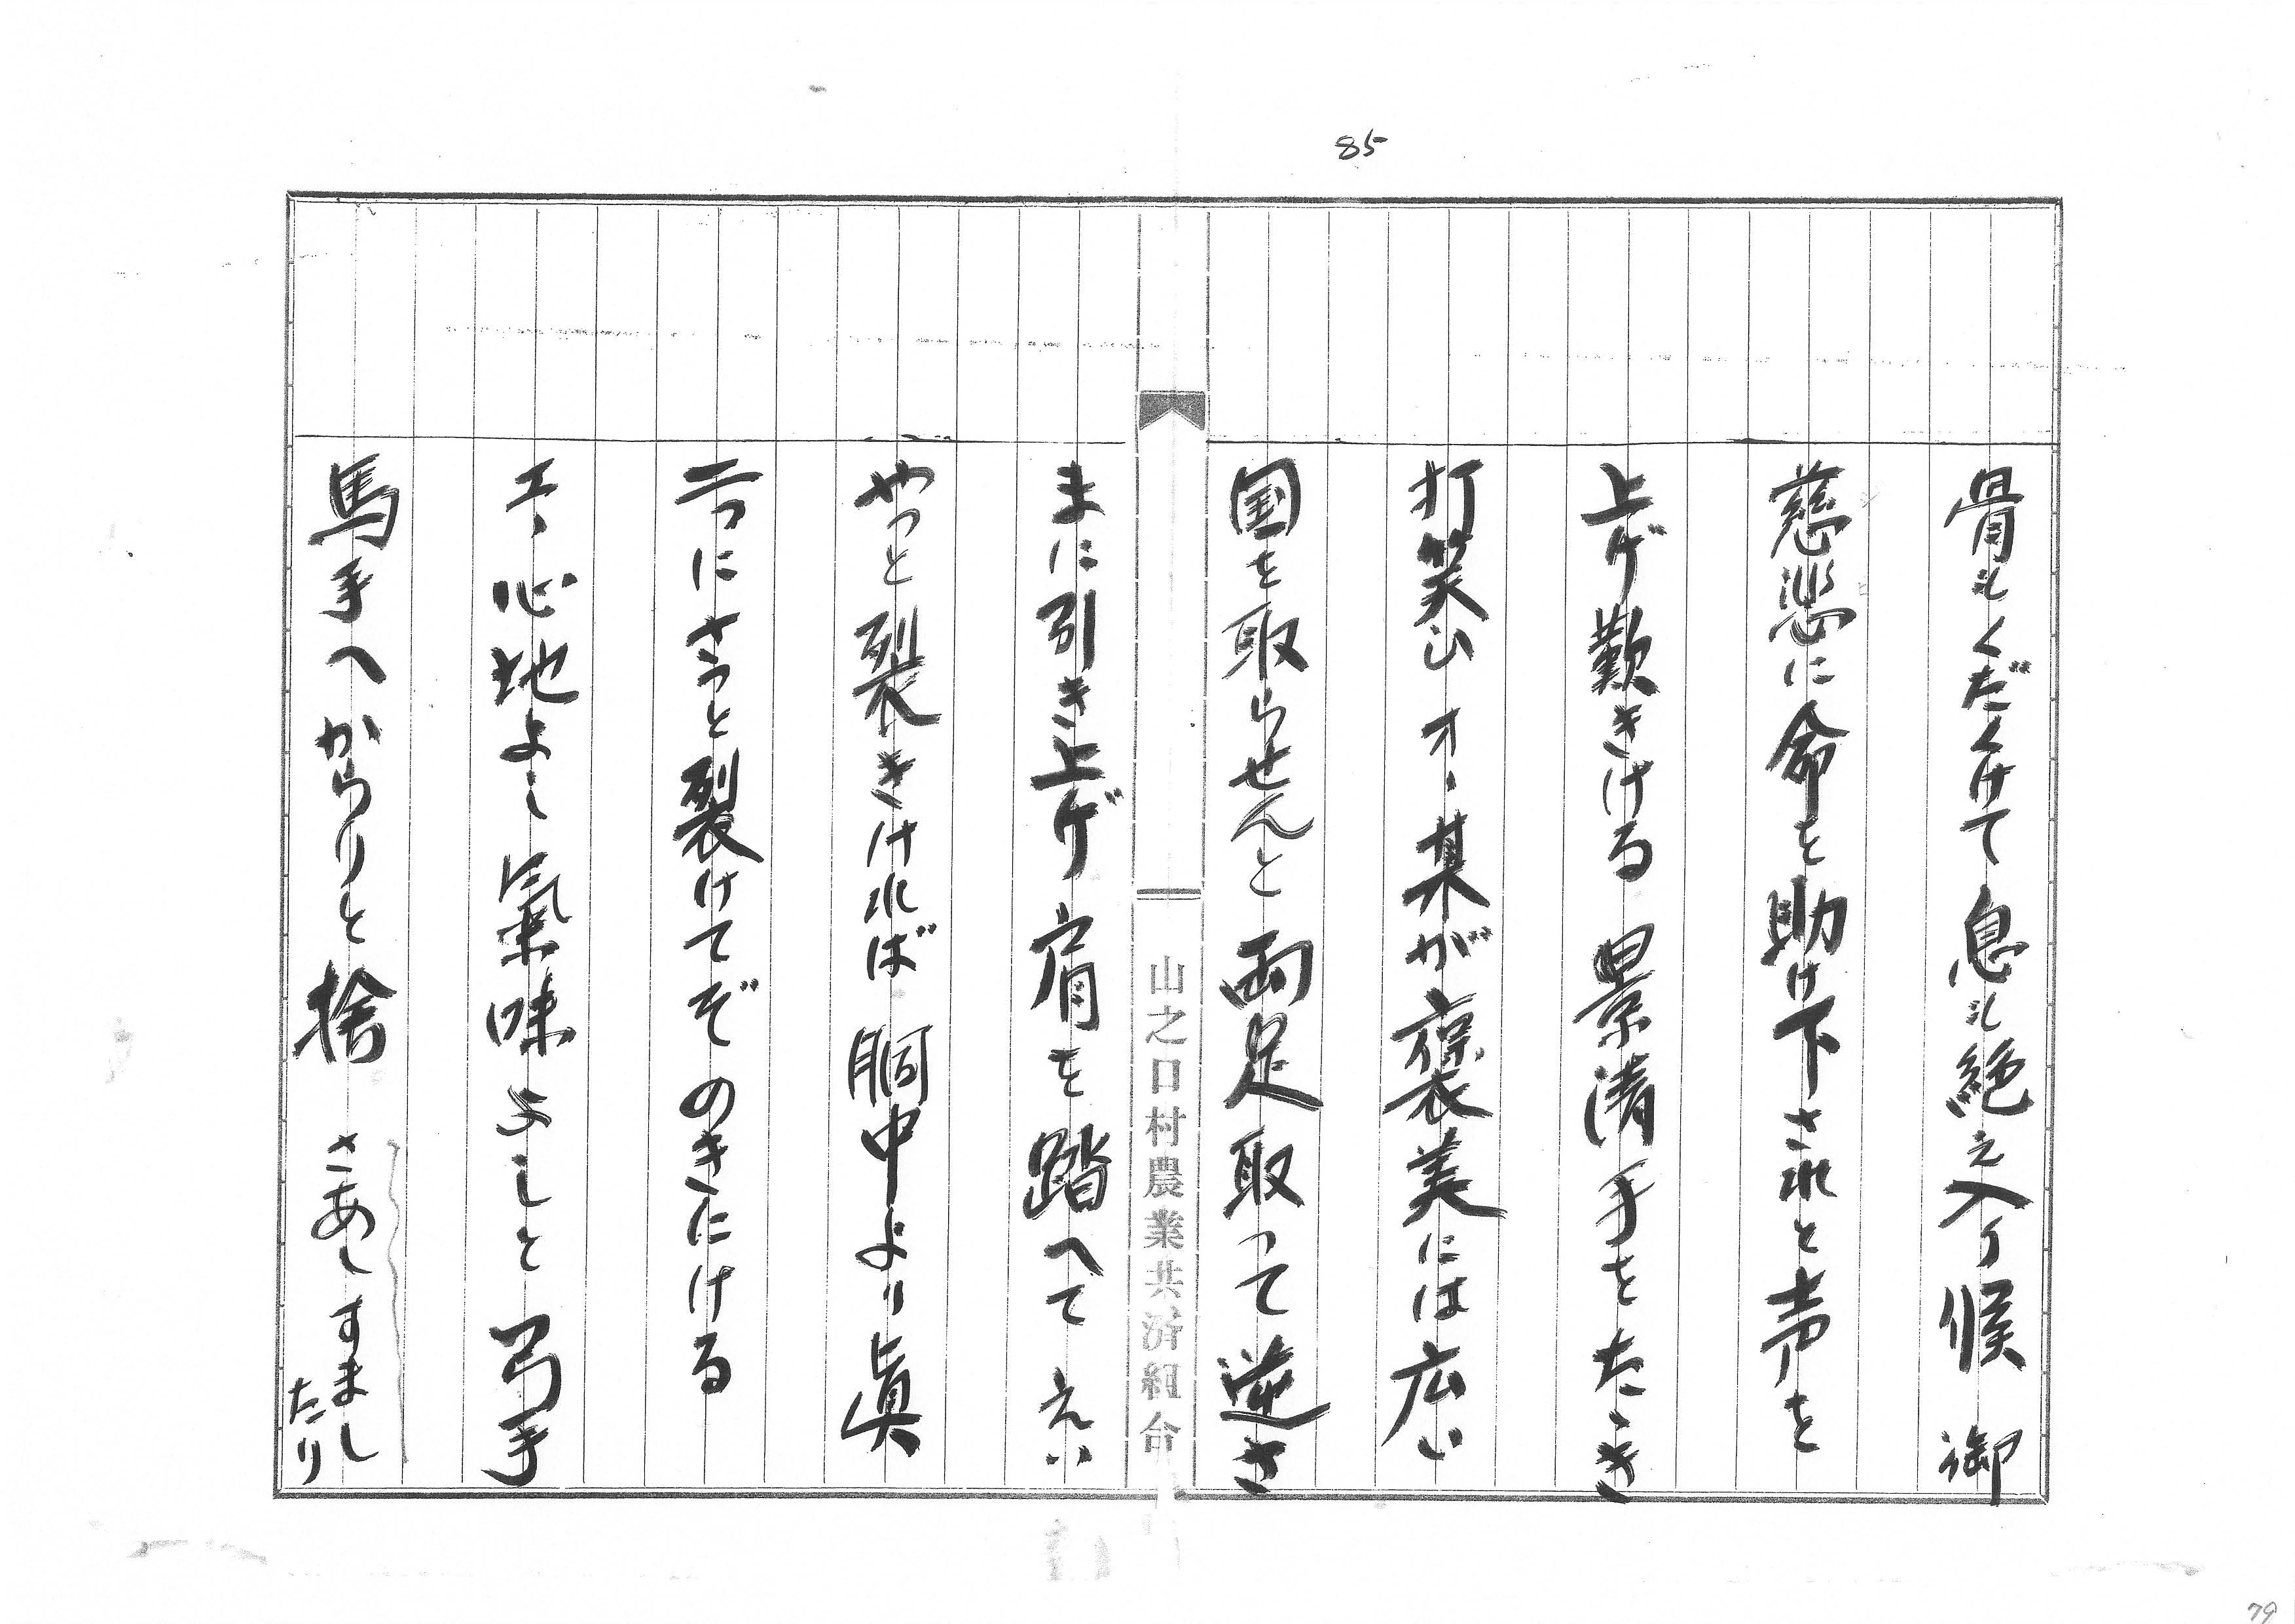 85
骨もくだくけて 息も絶え入り候 御
慈悲に命を助け下されと声を
上ゲ歎きける 景清手をたゝき
打笑ひ オヽ某が褒美には広い
国を取らせんと 両足取って逆さ
山之口村農業共済組合
まに引き上ゲ 肩を踏へて えい
やっと裂きければ 胴中より眞
二つにさっと裂けてぞ のきにける
エヽ心地よし 氣味よしと 弓手
馬手へからりと捨 さあしすまし
たり
79